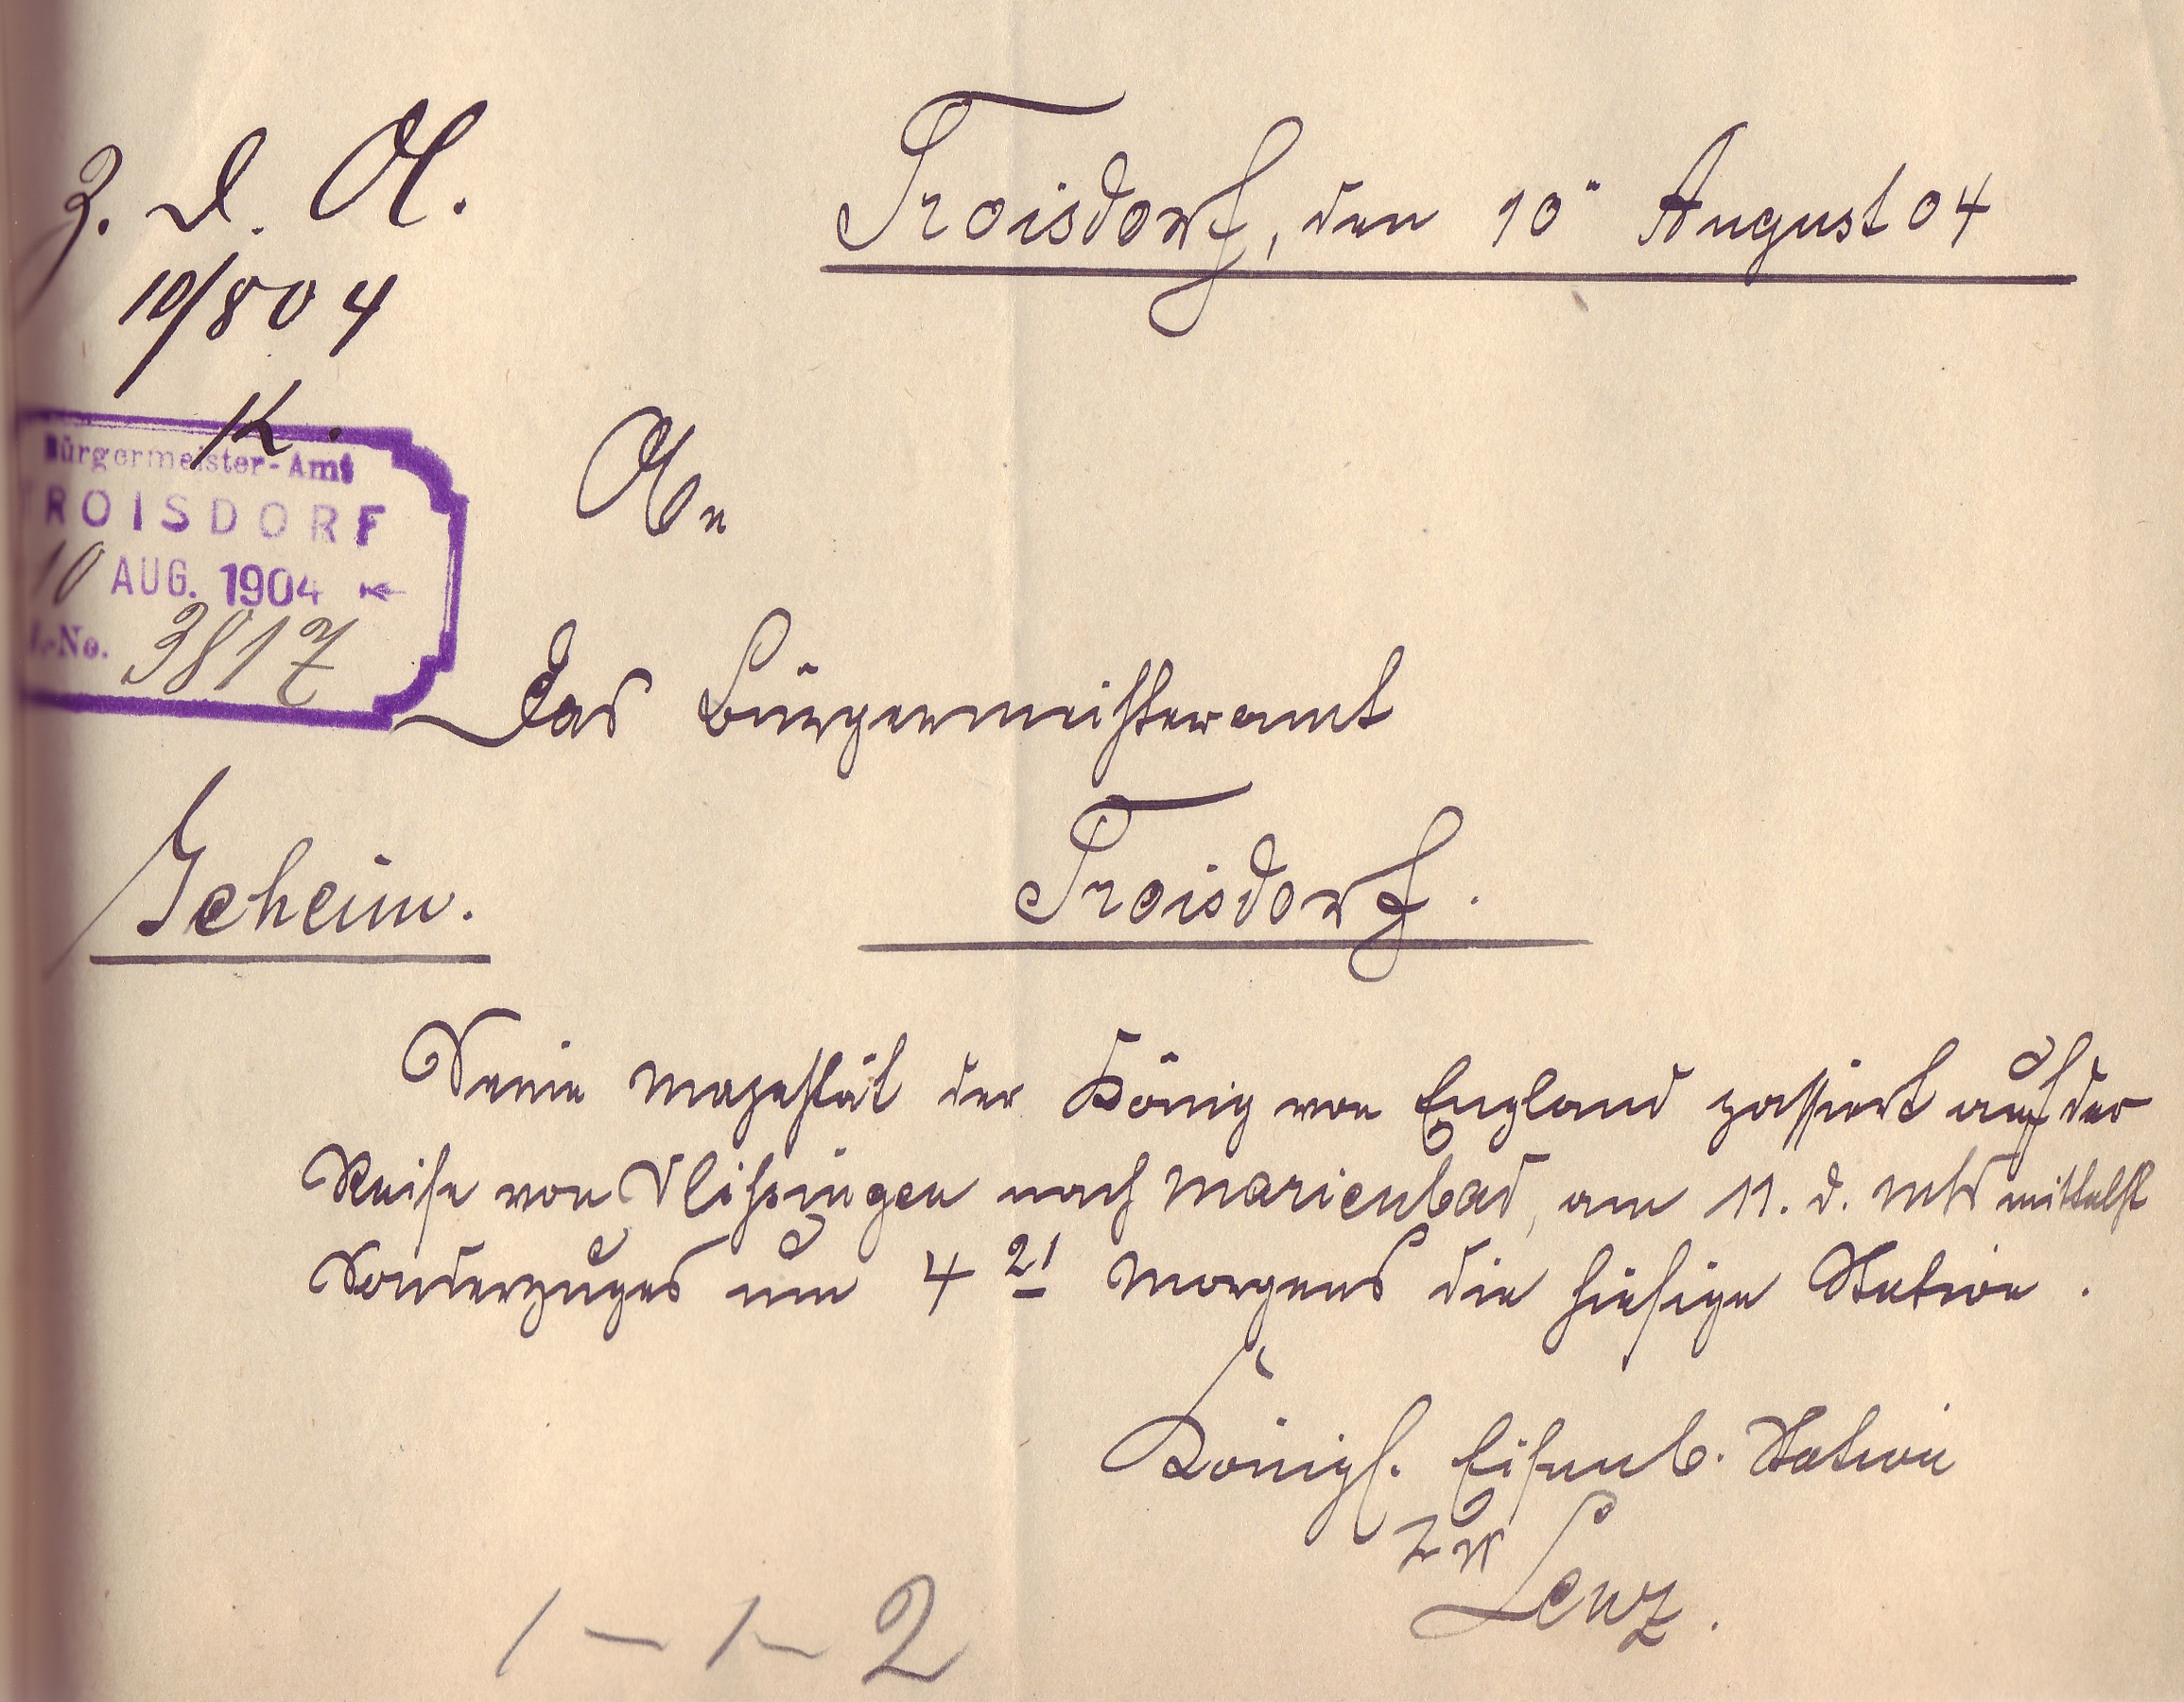 Z. d. A.
10/8 04
K.
Bürgermeister-Amt
TROISDORF
10 AUG. 1904
J.-No. 3817
Troisdorf, den 10" August 04
An
das Bürgermeisteramt
Troisdorf.
Geheim.
Seine Majestät der König von England passiert auf der
Reise von Vlissingen nach Marienbad, am 11. d. Mts mittelst
Sonderzuges um 4 21 Morgens die hiesige Station.
Königl. Eisenb. Station
Lenz.
1 – 1 – 2